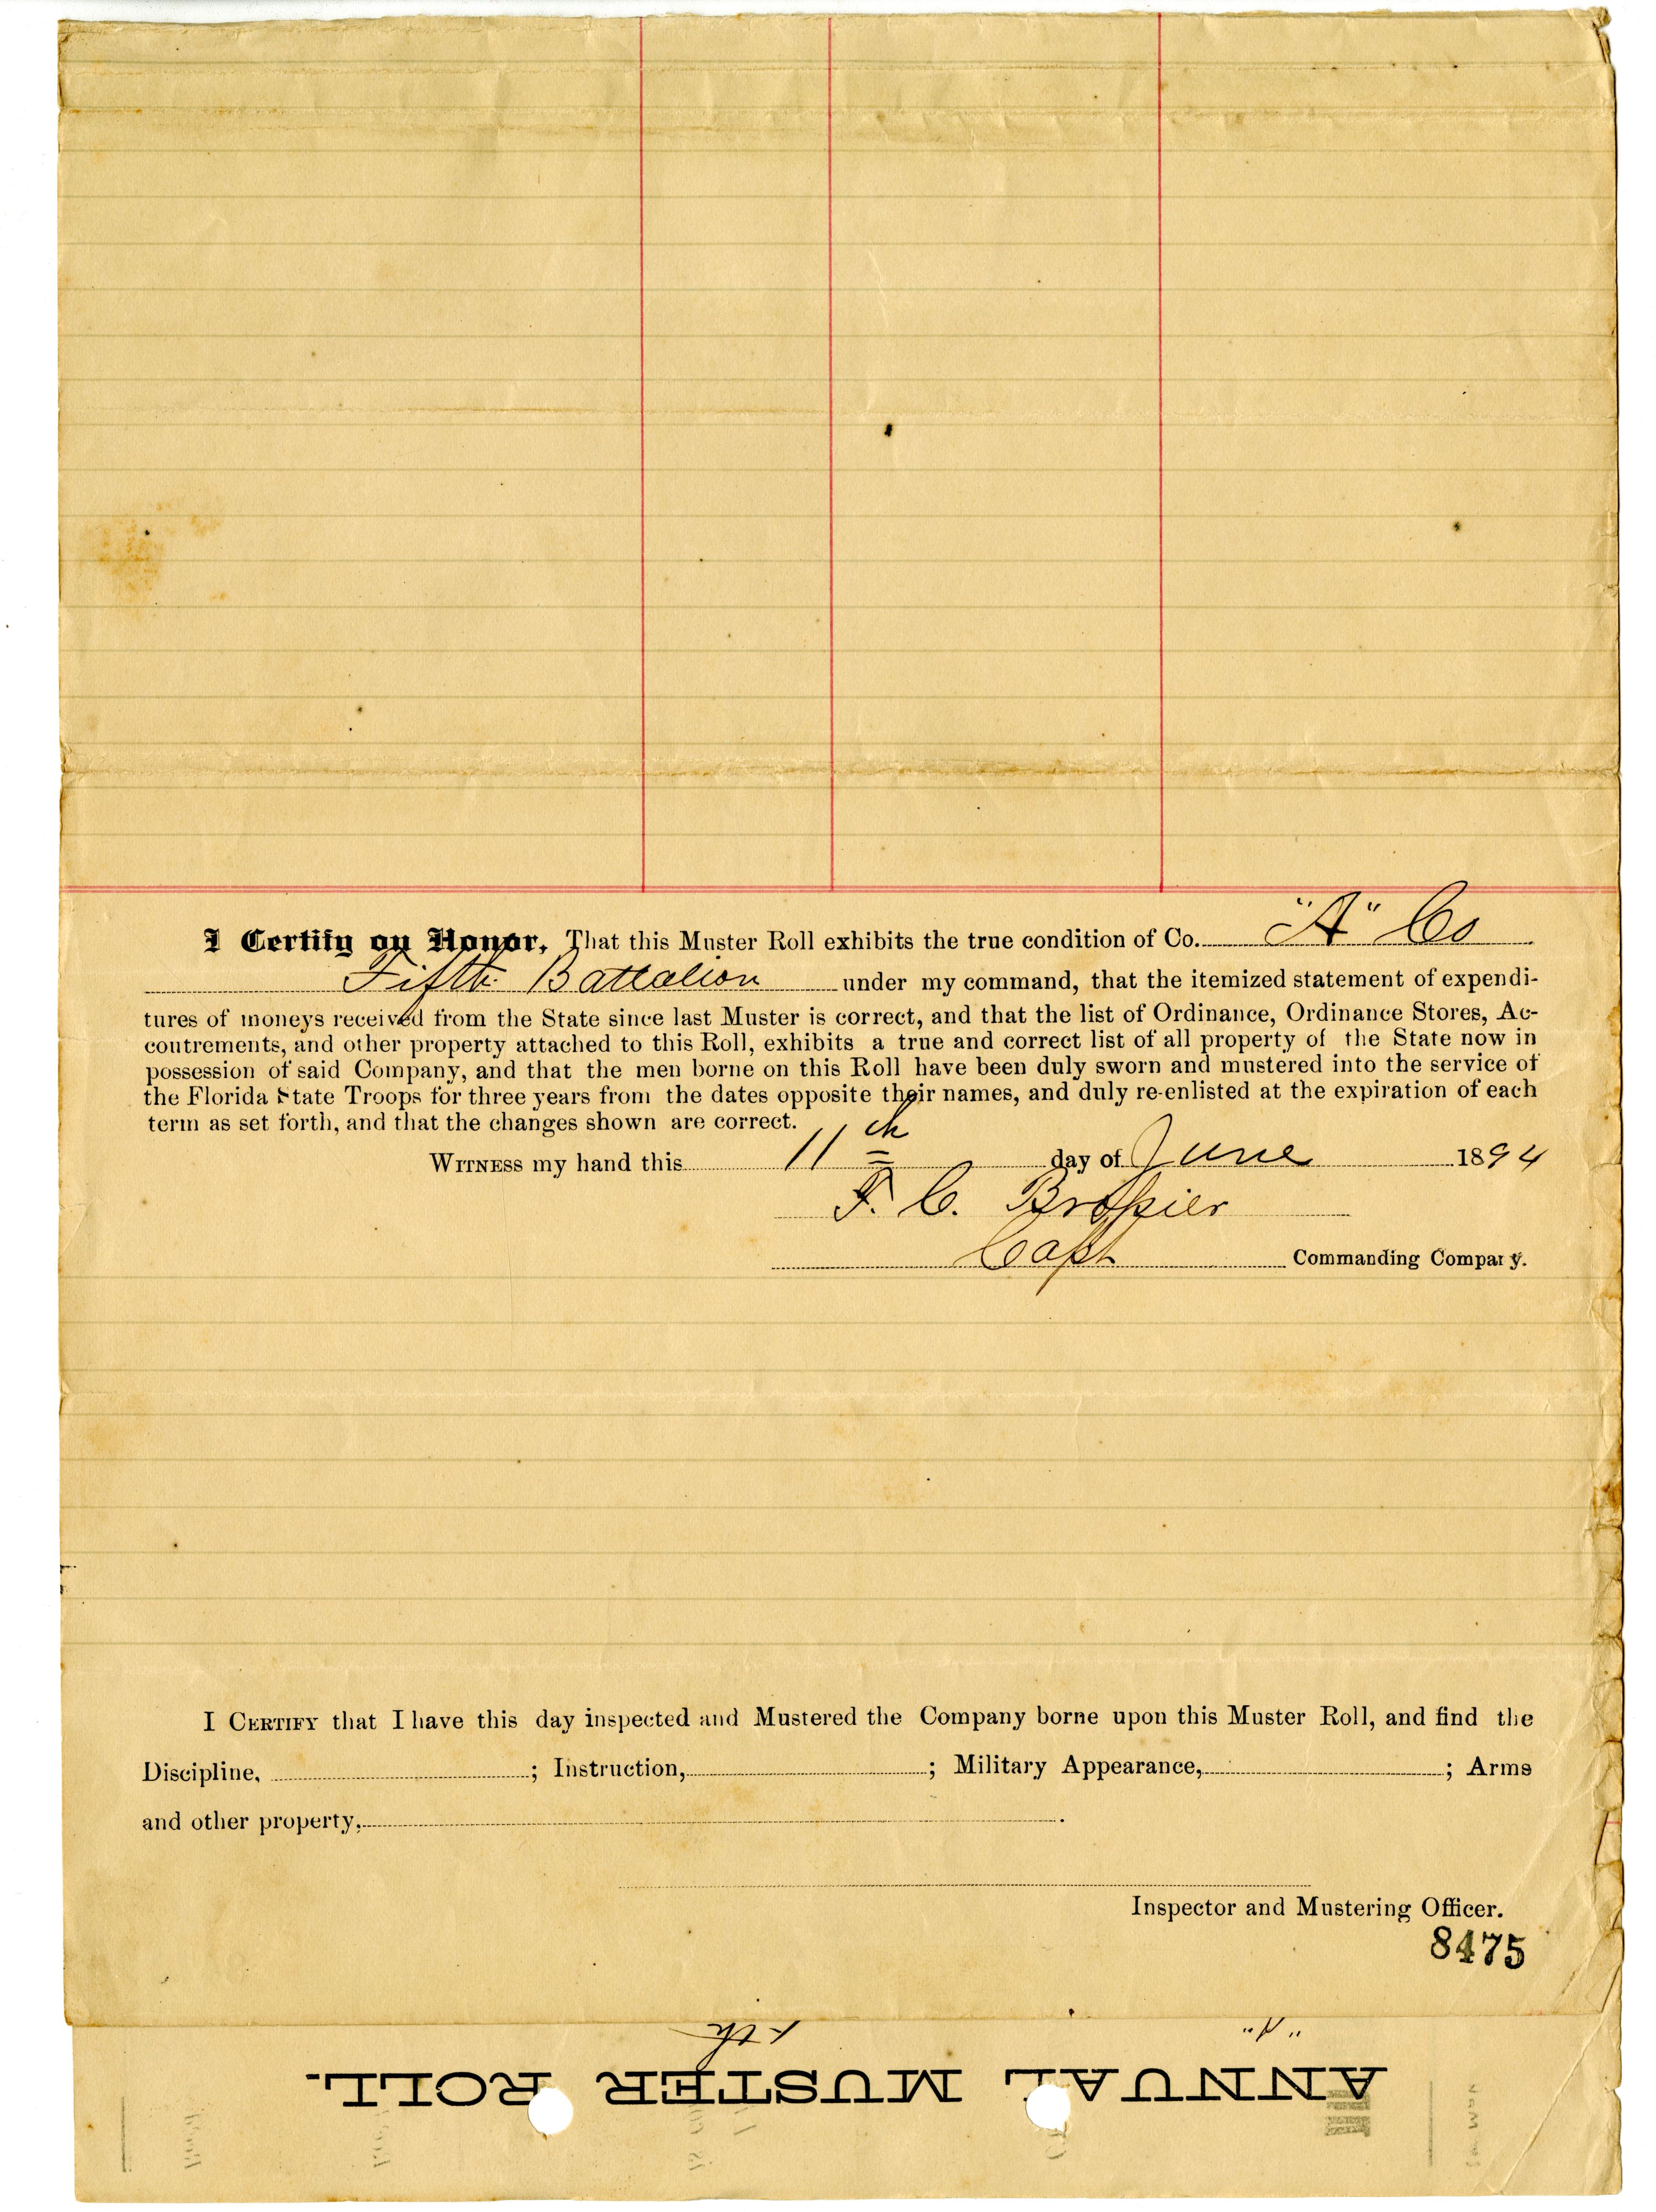 I Certify on Honor, That this Muster Roll exhibits the true condition of Co. "A" Co
Fifth Battalion under my command, that the itemized statement of expendi-
tures of moneys received from the State since last Muster is correct, and that the list of Ordinance, Ordinance Stores, Ac-
coutrements, and other property attached to this Roll, exhibits a true and correct list of all property of the State now in
possession of said Company, and that the men borne on this Roll have been duly sworn and mustered into the service of
the Florida State Troops for three years from the dates opposite their names, and duly re-enlisted at the expiration of each
term as set forth, and that the changes shown are correct.
WITNESS my hand this 11th day of June 1894
F. C. Brossier
Capt Commanding Company.
I CERTIFY that I have this day inspected and Mustered the Company borne upon this Muster Roll, and find the
Discipline, ; Instruction, ; Military Appearance, ; Arms
and other property, .
Inspector and Mustering Officer.
8475
"A" 5th
ANNUAL MUSTER ROLL.